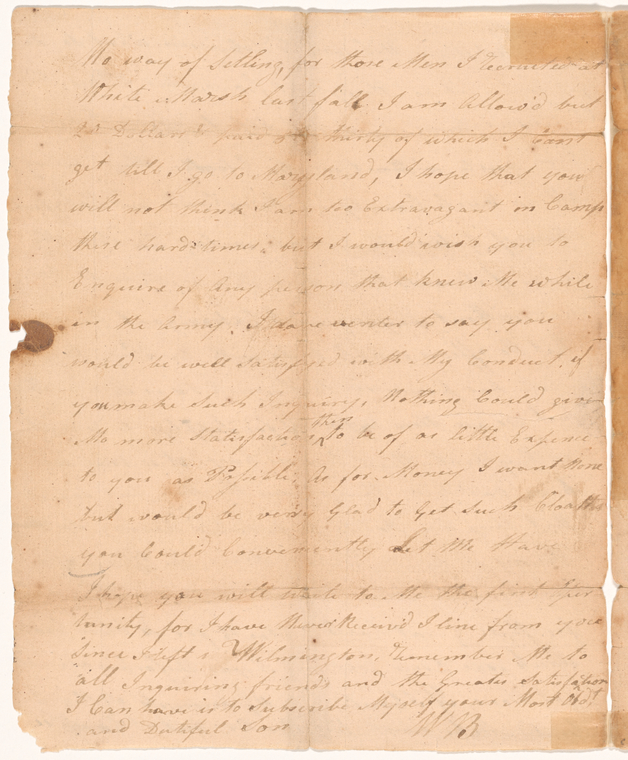 No way of Selling, for those Men I recruited at
White Marsh last fall I am Allow'd but
Dollars paid thirty of which I cant
get till I go to Maryland, I hope that you
will not think I am too Extravagant in Camp
these hard times. but I would wish you to
Enquire of Any person that knew Me while
in the Army. I dare venter to say you
would be well Satisfyed with My Conduct. if
you make Such Inquiry, Nothing Could give
Me more Statisfaction then to be of as little Expence
to you as Possible. As for Money I want None
but would be very Glad to Get Such Cloaths
you Could Conveniently Let Me Have
I hope you will write to Me the first
tunity, for I have Never Received I line from you
Since I left Wilmington. Remember Me to
all Inquiring friends and the Greates Satisfation
I Can have is to Subscribe Myself your Most Obdt
and Dutiful Son WB